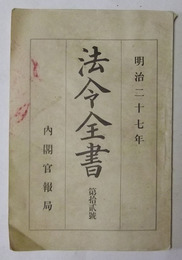 明治二十七年
法令全書
第拾貳號
內閣官報局